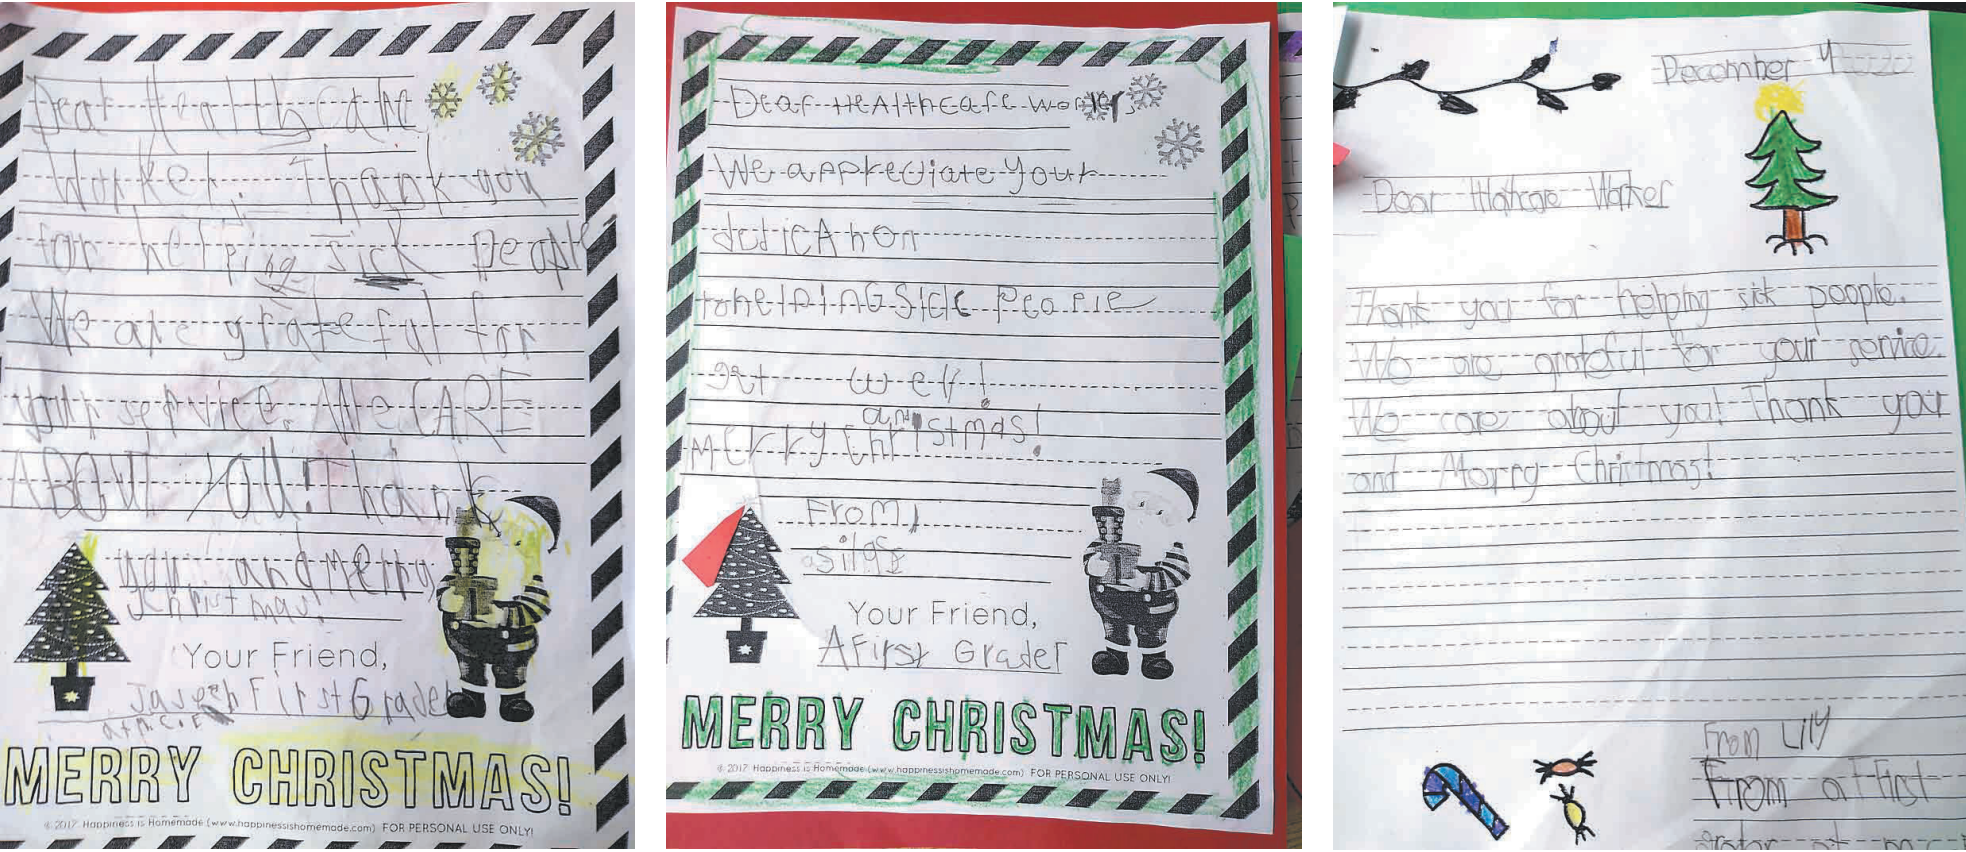 Dear Healthcare
Worker. Thank you
for helping sick people
We are grateful for
your service. We CARE
ABOUT YOU! Thank
you and Merry
Christmas!
Your Friend,
First Grader
at M.C.E
MERRY CHRISTMAS!
© 2017 Happiness is Homemade (www.happinessishomemade.com) FOR PERSONAL USE ONLY!
Dear HeAlthcare worker,
We appreciate your
dedicAtion
to helpinG Sick People
get well!
Merry Christmas!
From,
Silas
Your Friend,
A First Grader
MERRY CHRISTMAS!
© 2017 Happiness is Homemade (www.happinessishomemade.com) FOR PERSONAL USE ONLY!
December 4 2020
Dear Worker
Thank you for helping sick people.
We are grateful for your service.
We care about you! Thank you
and Merry Christmas!
From Lily
From a First
grader at